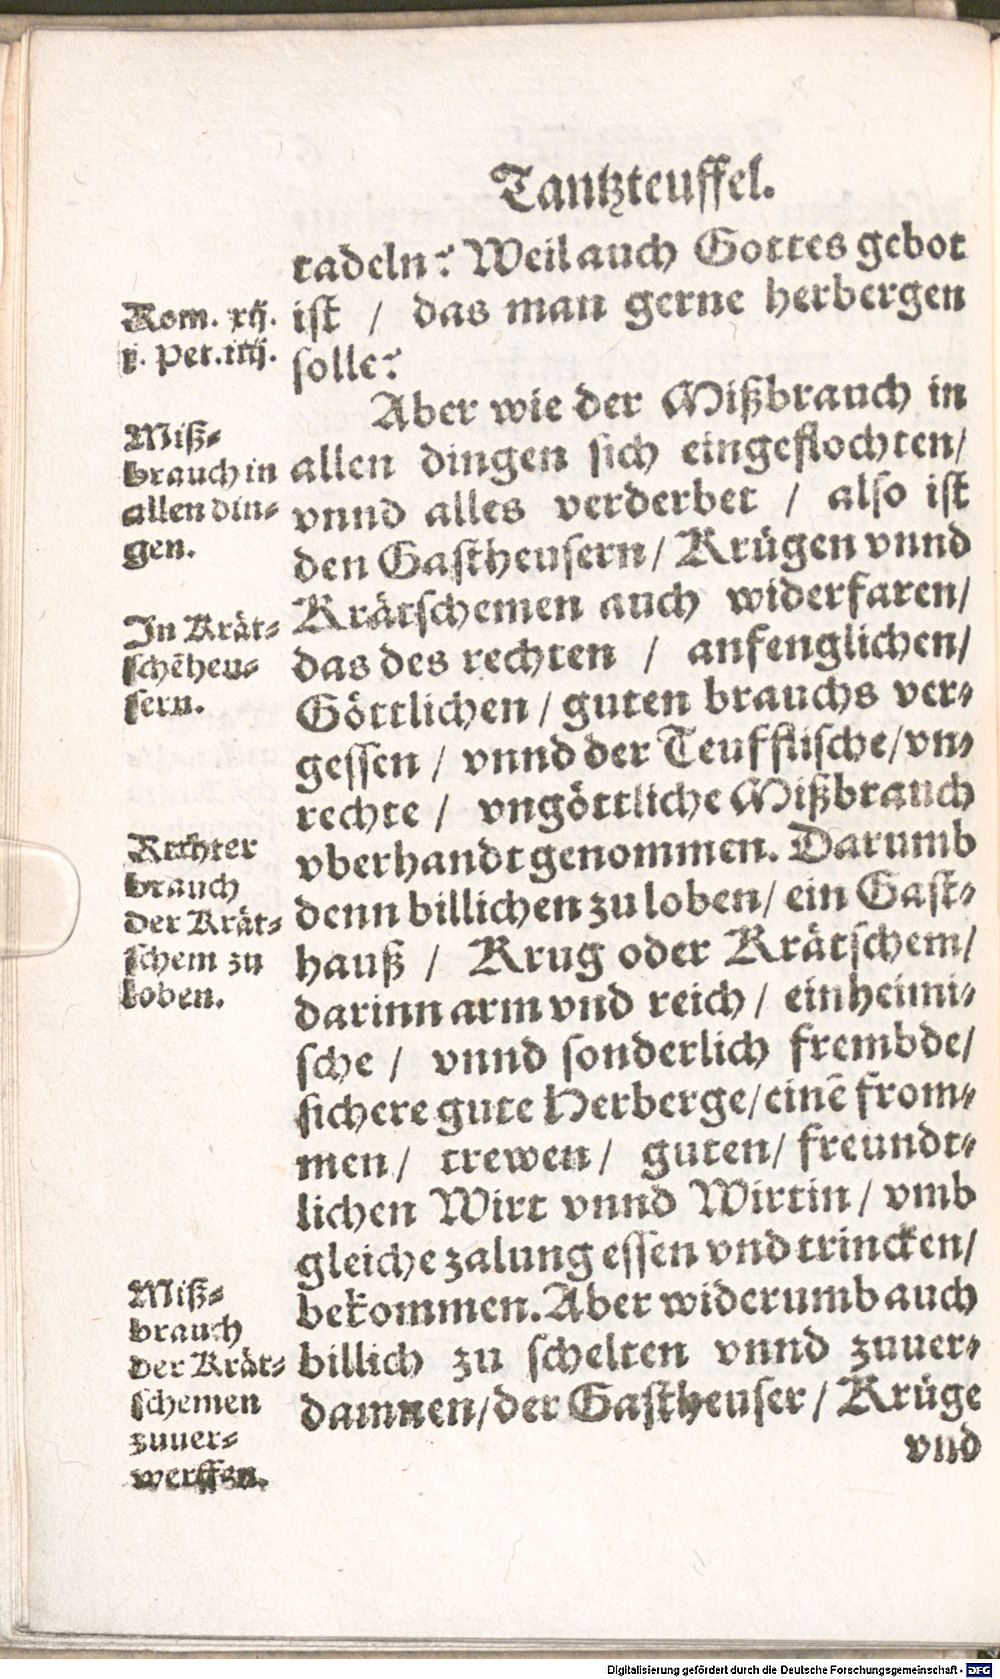 Tantzteuffel.
tadeln? Weil auch Gottes gebot
ist / das man gerne herbergen
solle?
Aber wie der Mißbrauch in
allen dingen sich eingeflochten/
vnnd alles verderbet / also ist
den Gastheusern/ Krügen vnnd
Krätschemen auch widerfaren/
das des rechten / anfenglichen/
Göttlichen / guten brauchs ver-
gessen / vnnd der Teufflische/vn-
rechte / vngöttliche Mißbrauch
vberhandt genommen. Darumb
denn billichen zu loben/ ein Gast-
hauß / Krug oder Krätschem/
darinn arm vnd reich / einheimi-
sche / vnnd sonderlich frembde/
sichere gute Herberge/einē from-
men/ trewen/ guten/ freundt-
lichen Wirt vnnd Wirtin / vmb
gleiche zalung essen vnd trincken/
bekommen. Aber widerumb auch
billich zu schelten vnnd zuuer-
damnen/der Gastheuser / Krüge
vnd
Rom. xij.
j. Pet. iiij.
Miß-
brauch in
allen din-
gen.
In Krät-
schēheu-
sern.
Rechter
brauch
der Krät-
schem zu
loben.
Miß-
brauch
der Krät-
schemen
zuuer-
werffen.
Digitalisierung gefördert durch die Deutsche Forschungsgemeinschaft - DFG